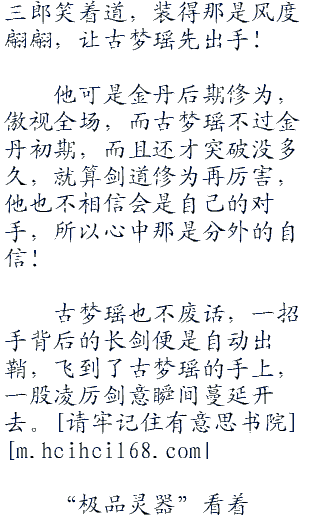 三郎笑着道，装得那是风度
翩翩，让古梦瑶先出手！
他可是金丹后期修为，
傲视全场，而古梦瑶不过金
丹初期，而且还才突破没多
久，就算剑道修为再厉害，
他也不相信会是自己的对
手，所以心中那是分外的自
信！
古梦瑶也不废话，一招
手背后的长剑便是自动出
鞘，飞到了古梦瑶的手上，
一股凌厉剑意瞬间蔓延开
去。[请牢记住有意思书院]
[m.hcihci168.com|
“极品灵器”看着